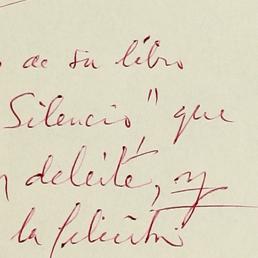 de su libro
Silencio", que
deleite, y
la felicito